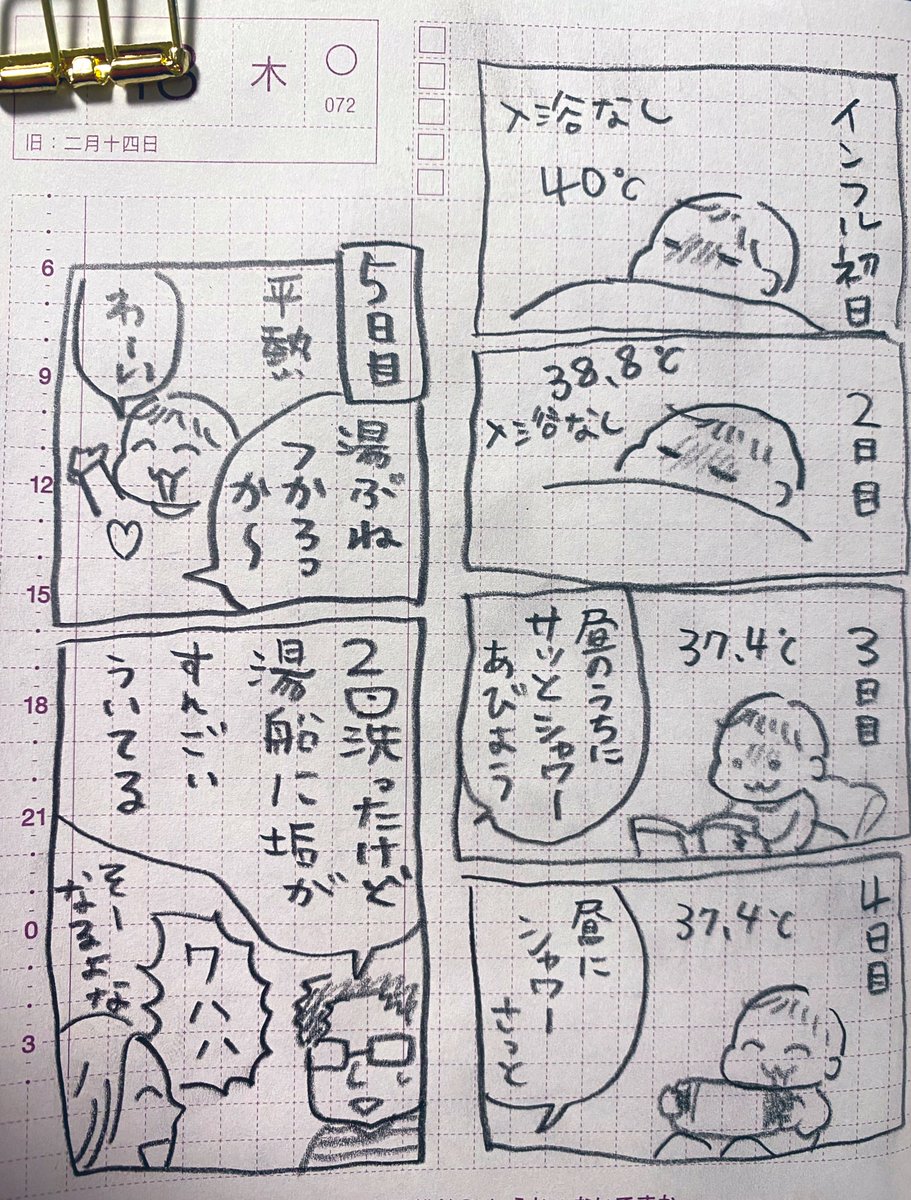 木
072
旧：二月十四日
インフル初日
入浴なし
40℃
2日目
38.8℃
入浴なし
3日目
37.4℃
昼のうちに
サッとシャワー
あびよう
4日目
37.4℃
昼に
シャワー
さっと
5日目
平熱
湯ぶね
つかろっ
か〜
わーい
2回洗ったけど
湯船に垢が
すんごい
ういてる
ワハハ
そー
なるよな
6
9
12
15
18
21
0
3